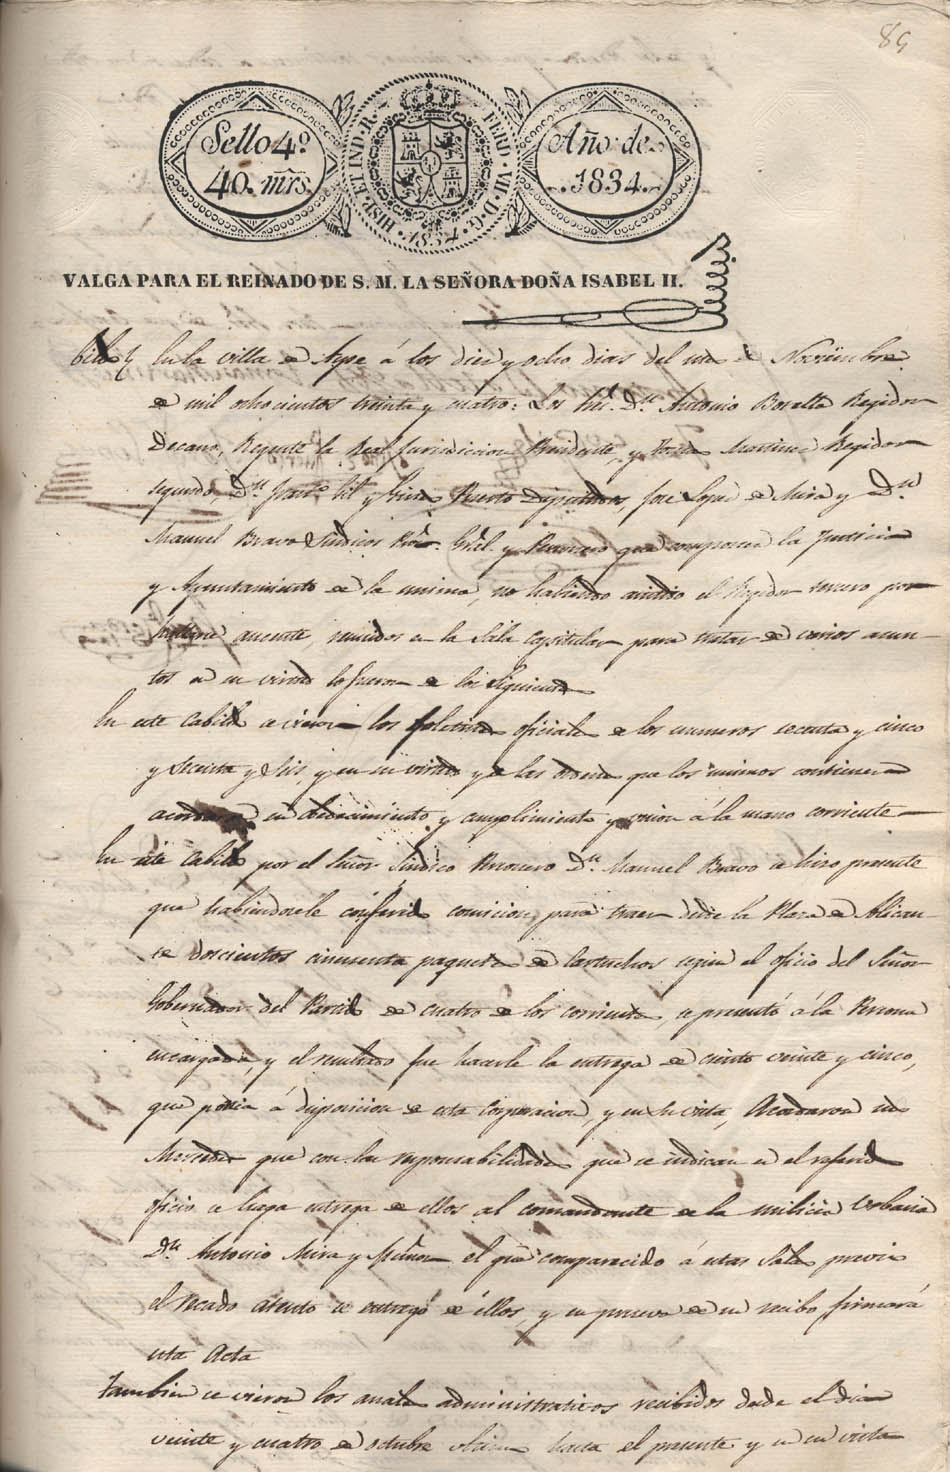 89
Sello 4.º
40. mrs.
HISP. ET IND. R.
FERD. VII. D. G.
1834
Año de
1834.
VALGA PARA EL REINADO DE S. M. LA SEÑORA DOÑA ISABEL II.
En la villa de Aspe á los diez y ocho dias del mes de Noviembre
de mil ochocientos treinta y cuatro: Los Sres. Dn. Antonio Botella Regidor
Decano, Regente la Real Jurisdiccion Presidente, y Martinez Regidor
segundo, Dn. Franco. y Puerto Diputados, Jose Lopez de Mira y Dn.
Manuel Bravo Sindicos Pror. Gral. y Personero que componen la Justicia
y Ayuntamiento de la misma, no habiendo asistido el Regidor tercero por
hallarse ausente, reunidos en la Sala Capitular para tratar de varios asun-
tos en su virtud lo fueron de los siguientes
En este Cabildo se vieron los Boletines oficiales de los numeros secenta y cinco
y secenta y seis, y en su virtud y de las ordenes que los mismos contienen
acordaron su obedecimiento y cumplimiento y union á la mano corriente
En este Cabildo por el Señor Sindico Personero Dn. Manuel Bravo se hizo presente
que habiendosele conferido comicion para traer desde la Plaza de Alican-
te doscientos cincuenta paquetes de Cartuchos segun el oficio del Señor
Gobernador del Partido de cuatro de los corrientes, se presentó á la Persona
encargada, y el resultado fue hacerle la entrega de ciento veinte y cinco,
que ponia á disposicion de esta Corporacion, y en su vista, Acordaron sus
Mercedes que con las responsabilidades que se indican en el referido
oficio se haga entrega de ellos al comandante de la milicia Urbana
Dn. Antonio Mira y el que comparecido á estas Salas previo
el recado atento se entregó de ellos, y en prueva de su recibo firmará
esta Acta
Tambien se vieron los anales administrativos recibidos desde el dia
veinte y cuatro de octubre ultimo hasta el presente y en su vista